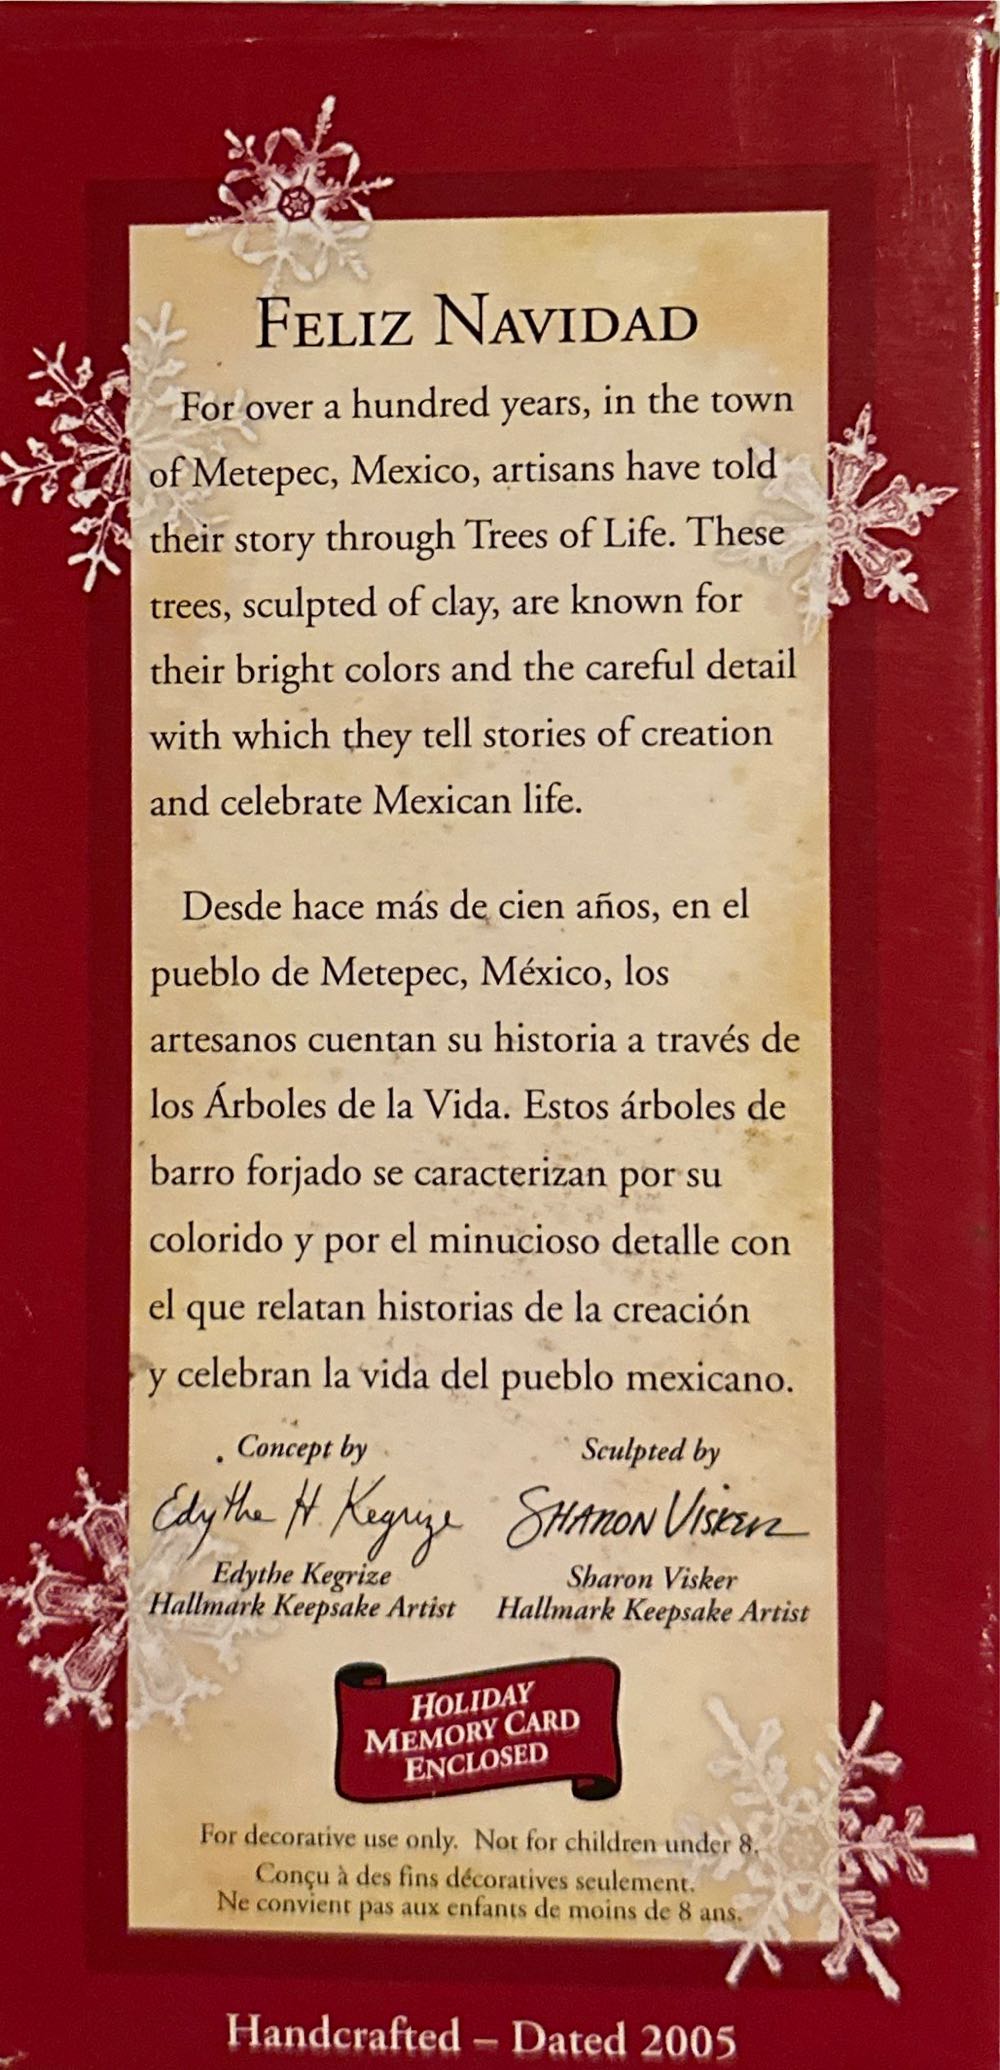 FELIZ NAVIDAD
For over a hundred years, in the town
of Metepec, Mexico, artisans have told
their story through Trees of Life. These
trees, sculpted of clay, are known for
their bright colors and the careful detail
with which they tell stories of creation
and celebrate Mexican life.
Desde hace más de cien años, en el
pueblo de Metepec, México, los
artesanos cuentan su historia a través de
los Árboles de la Vida. Estos árboles de
barro forjado se caracterizan por su
colorido y por el minucioso detalle con
el que relatan historias de la creación
y celebran la vida del pueblo mexicano.
Concept by
Edythe H. Kegrize
Edythe Kegrize
Hallmark Keepsake Artist
Sculpted by
SHARON VISKER
Sharon Visker
Hallmark Keepsake Artist
HOLIDAY
MEMORY CARD
ENCLOSED
For decorative use only. Not for children under 8.
Conçu à des fins décoratives seulement.
Ne convient pas aux enfants de moins de 8 ans.
Handcrafted – Dated 2005